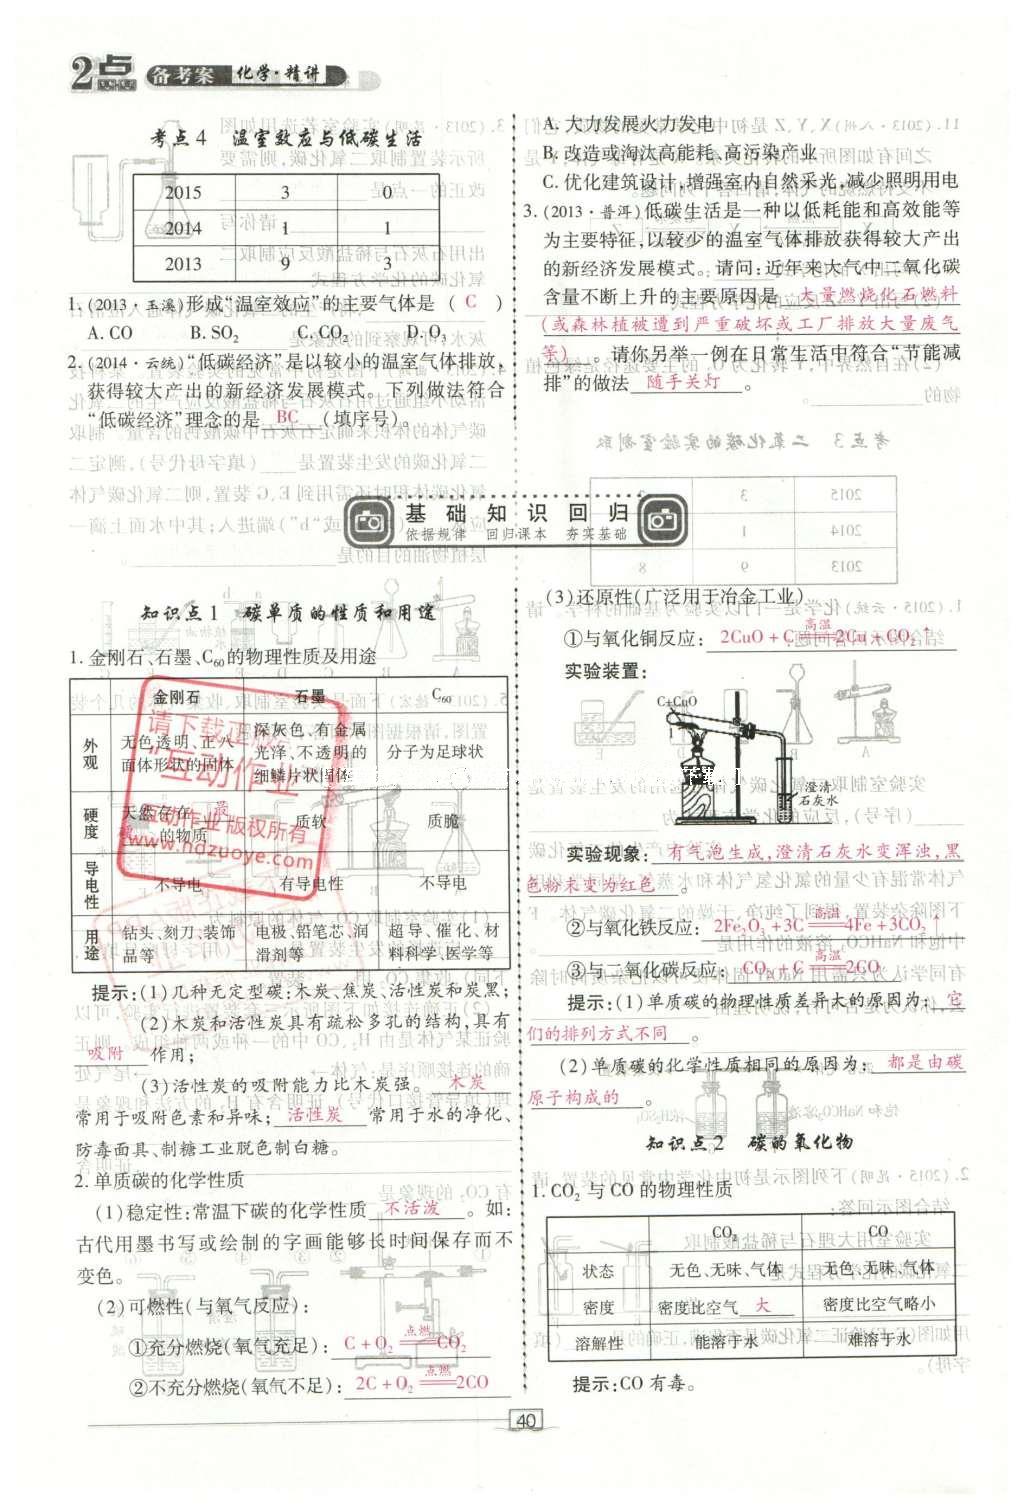 2点 备考案 化学·精讲
考点4 温室效应与低碳生活
2015 3 0
2014 1 1
2013 9 3
1.(2013·玉溪)形成“温室效应”的主要气体是 ( C )
A. CO B. SO₂ C. CO₂ D. O₃
2.(2014·云统)“低碳经济”是以较小的温室气体排放,
获得较大产出的新经济发展模式。下列做法符合
“低碳经济”理念的是 BC (填序号)。
A. 大力发展火力发电
B. 改造或淘汰高能耗、高污染产业
C. 优化建筑设计,增强室内自然采光,减少照明用电
3.(2013·普洱)低碳生活是一种以低耗能和高效能等
为主要特征,以较少的温室气体排放获得较大产出
的新经济发展模式。请问:近年来大气中二氧化碳
含量不断上升的主要原因是 大量燃烧化石燃料
(或森林植被遭到严重破坏或工厂排放大量废气
等) 。请你另举一例在日常生活中符合“节能减
排”的做法 随手关灯 。
基础知识回归
依据规律 回归课本 夯实基础
知识点1 碳单质的性质和用途
1. 金刚石、石墨、C₆₀的物理性质及用途
金刚石 石墨 C₆₀
外观 无色透明、正八面体形状的固体 深灰色、有金属光泽、不透明的细鳞片状固体 分子为足球状
硬度 天然存在 最 的物质 质软 质脆
导电性 不导电 有导电性 不导电
用途 钻头、刻刀、装饰品等 电极、铅笔芯、润滑剂等 超导、催化、材料科学、医学等
请下载正版
“互动作业”
互动作业版权所有
www.hdzuoye.com
提示:(1)几种无定型碳:木炭、焦炭、活性炭和炭黑;
(2)木炭和活性炭具有疏松多孔的结构,具有
吸附 作用;
(3)活性炭的吸附能力比木炭强。 木炭
常用于吸附色素和异味; 活性炭 常用于水的净化、
防毒面具、制糖工业脱色制白糖。
2. 单质碳的化学性质
(1)稳定性:常温下碳的化学性质 不活泼 。如:
古代用墨书写或绘制的字画能够长时间保存而不
变色。
(2)可燃性(与氧气反应):
①充分燃烧(氧气充足): C + O₂ 点燃══ CO₂
②不充分燃烧(氧气不足): 2C + O₂ 点燃══ 2CO
(3)还原性(广泛用于冶金工业)
①与氧化铜反应: 2CuO + C 高温══ 2Cu + CO₂↑
实验装置:
C+CuO
澄清
石灰水
实验现象: 有气泡生成,澄清石灰水变浑浊,黑
色粉末变为红色 。
②与氧化铁反应: 2Fe₂O₃ +3C 高温══ 4Fe +3CO₂↑
③与二氧化碳反应: CO₂ + C 高温══ 2CO
提示:(1)单质碳的物理性质差异大的原因为: 它
们的排列方式不同 。
(2)单质碳的化学性质相同的原因为: 都是由碳
原子构成的 。
知识点2 碳的氧化物
1. CO₂ 与 CO 的物理性质
CO₂ CO
状态 无色、无味、气体 无色、无味、气体
密度 密度比空气 大 密度比空气略小
溶解性 能溶于水 难溶于水
提示:CO 有毒。
40